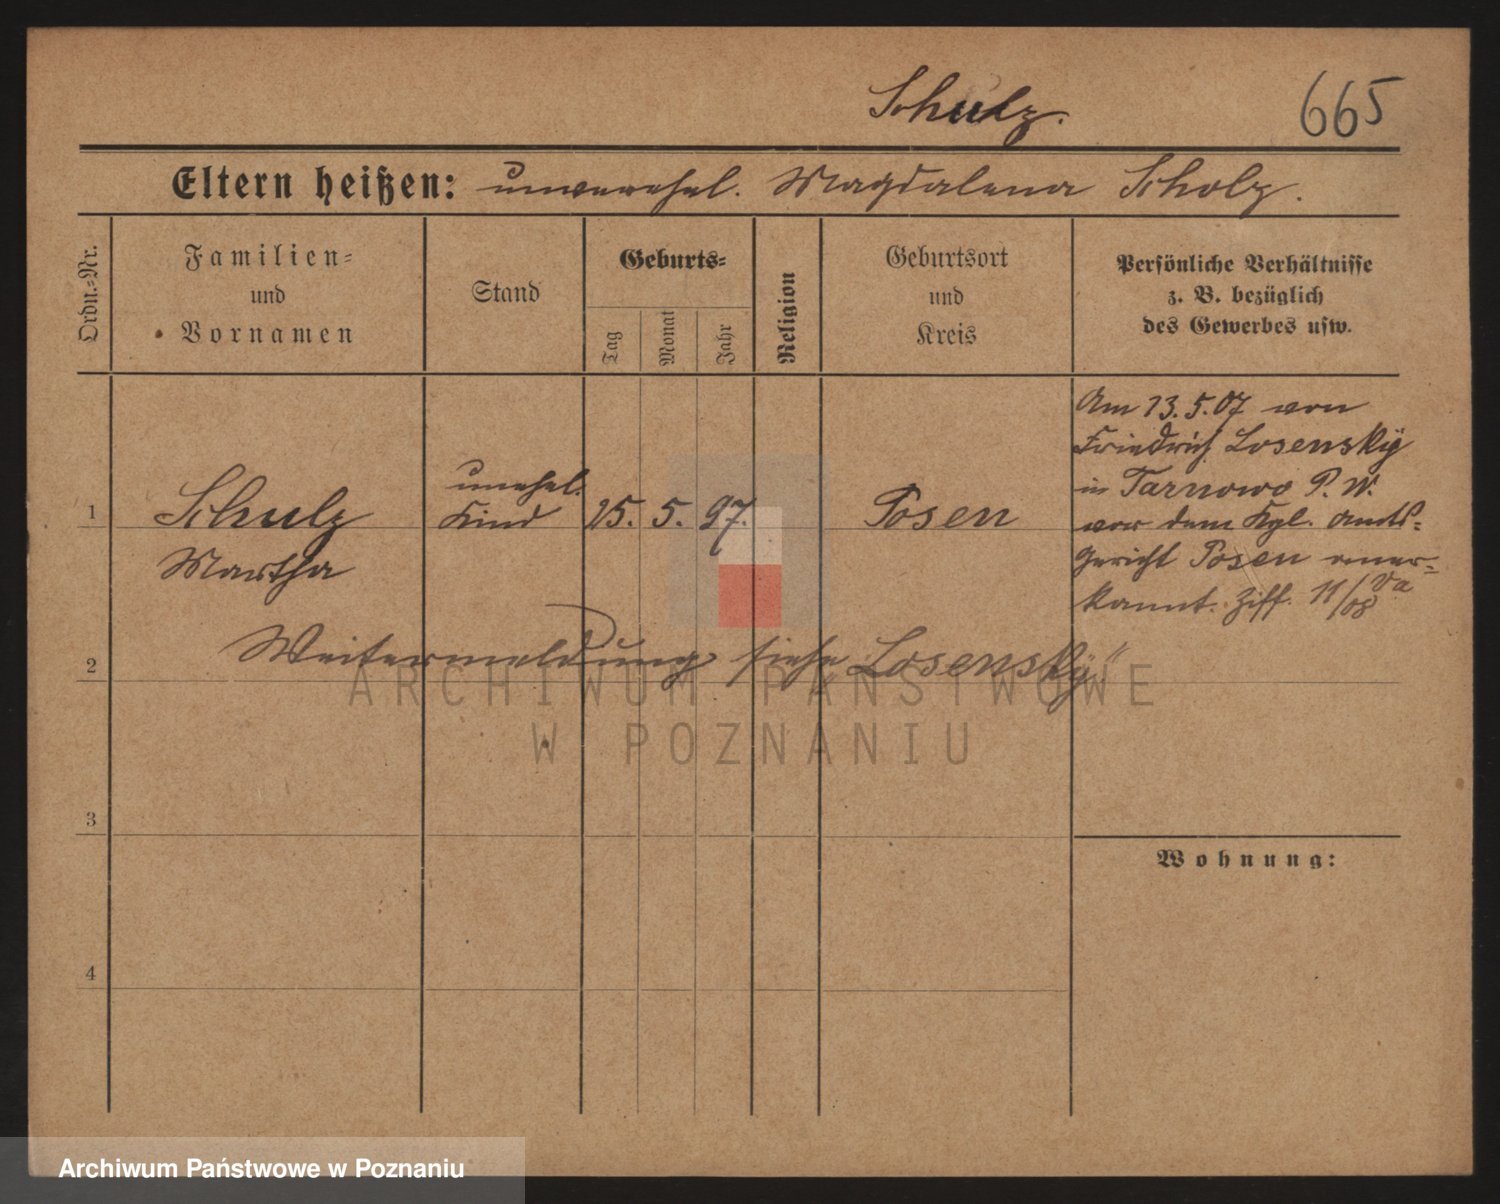 Schulz.
665
Eltern heißen: unverehel. Magdalena Scholz.
Ordn.-Nr.
Familien-
und
Vornamen
Stand
Geburts-
Tag
Monat
Jahr
Religion
Geburtsort
und
Kreis
Persönliche Verhältnisse
z. B. bezüglich
des Gewerbes usw.
1
Schulz
Martha
unehel.
Kind
25. 5. 97.
Posen
Am 13.5.07 von
Friedrich Losensky
in Tarnowo P. W.
vor dem Kgl. Amts-
gericht Posen aner-
kannt. Ziff. 11/08 Va
2
Weitermeldung siehe „Losensky"
3
Wohnung:
4
ARCHIWUM PAŃSTWOWE
W POZNANIU
Archiwum Państwowe w Poznaniu